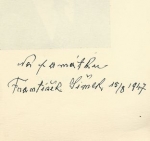 Na památku
František Šimek 15/8 1947.